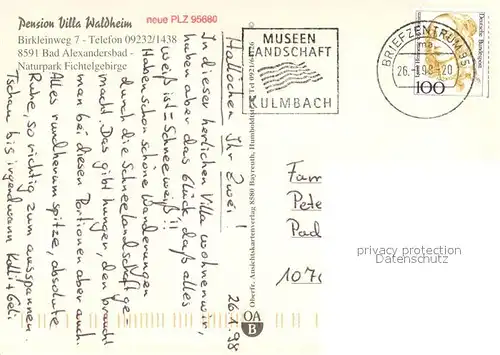 Pension Villa Waldheim
neue PLZ 95680
Birkleinweg 7 - Telefon 09232/1438
8591 Bad Alexandersbad -
Naturpark Fichtelgebirge
26.1.98
Hallöchen Ihr Zwei!
In dieser herlichen Villa wohnen wir,
haben aber das Glück, daß alles
weiß ist = Schneeweiß!!
Haben schon schöne Wanderungen
durch die Schneelandschaft ge-
macht. Das gibt Hunger, den braucht
man bei diesen Portionen aber auch.
Alles rundherum spitze, absolute
Ruhe, so richtig zum ausspannen.
Tschau bis irgendwann Kalli + Geli
Oberfr. Ansichtskartenverlag 8580 Bayreuth, Humboldtstr. Tel 0921
OA
B
MUSEEN
LANDSCHAFT
KULMBACH
BRIEFZENTRUM 95
ma
26.-1.98-20
Deutsche Bundespost
100
Fam
Pete
Pad
107
privacy protection
Datenschutz